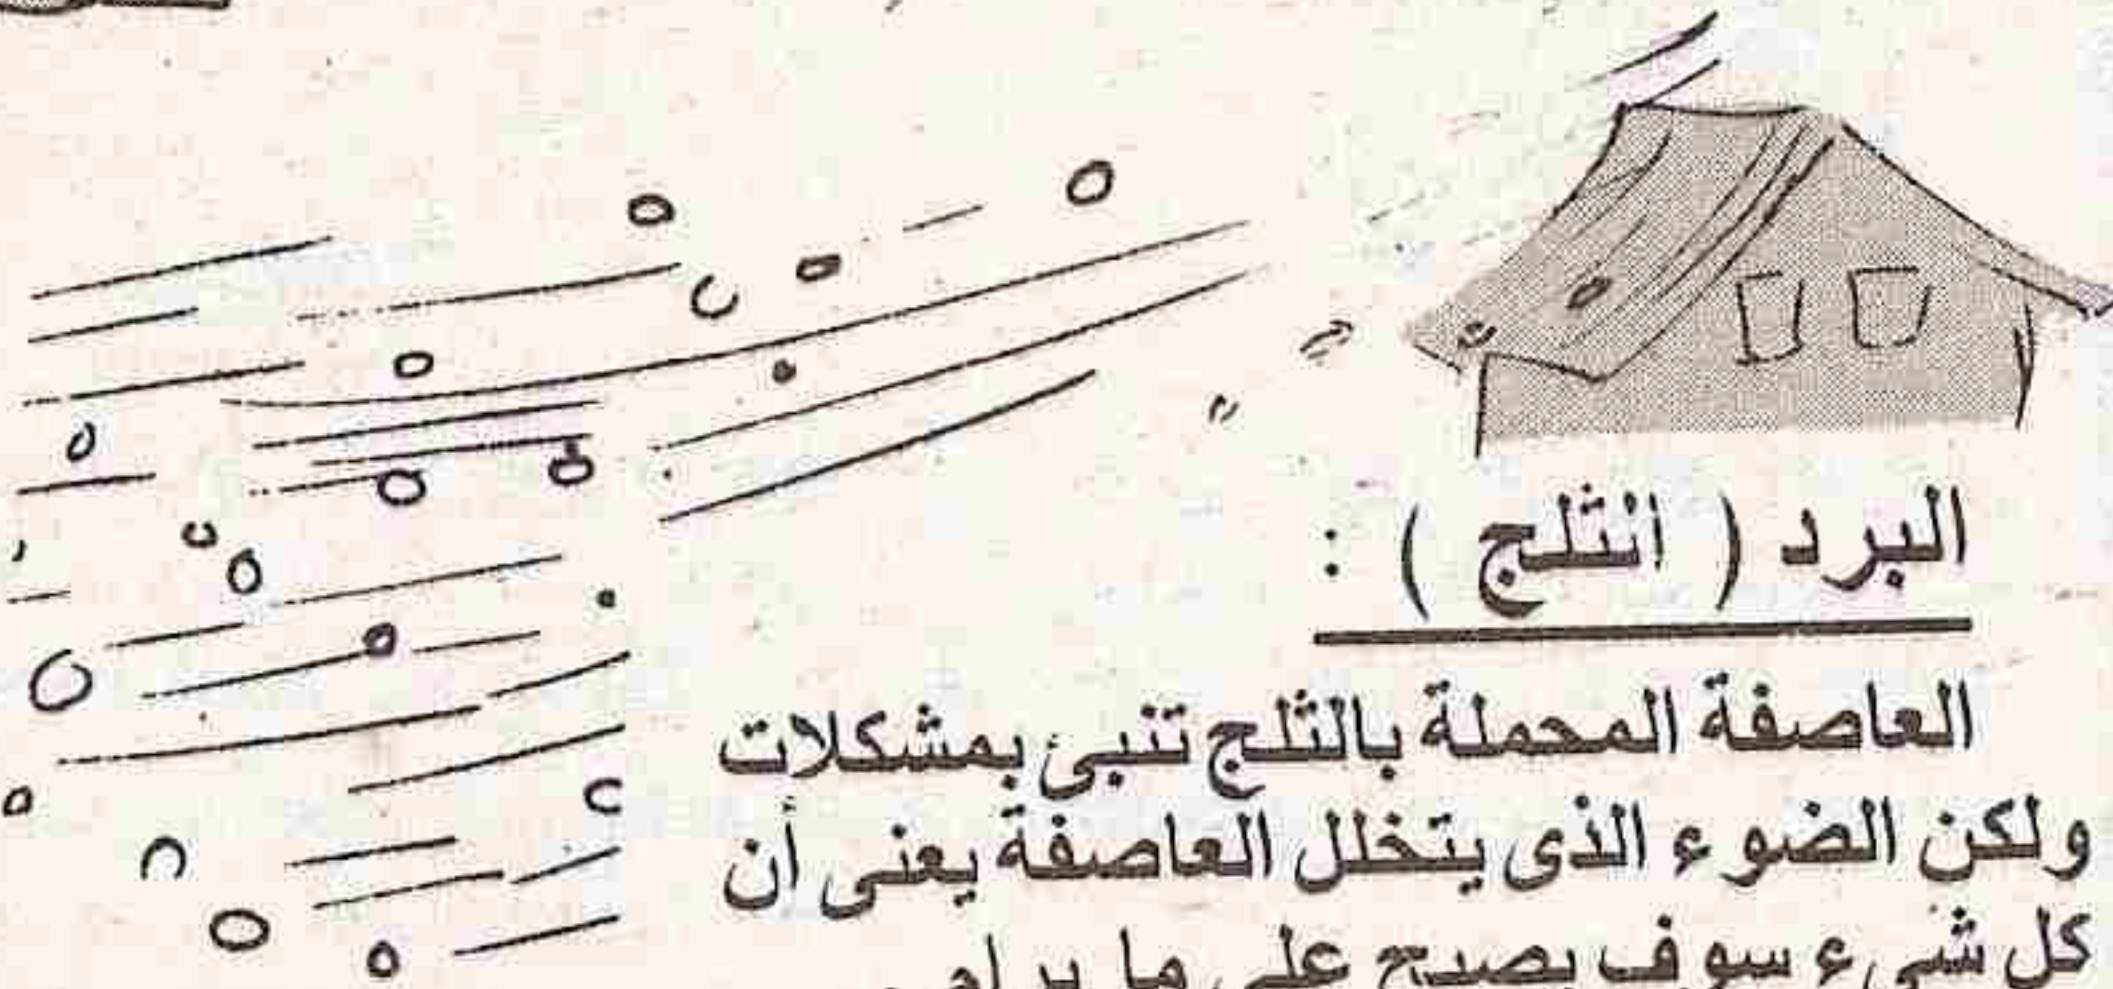 البرد ( الثلج ) :
العاصفة المحملة بالثلج تنبئ بمشكلات
ولكن الضوء الذى يتخلل العاصفة يعنى أن
كل شىء سوف يصبح على ما يرام .